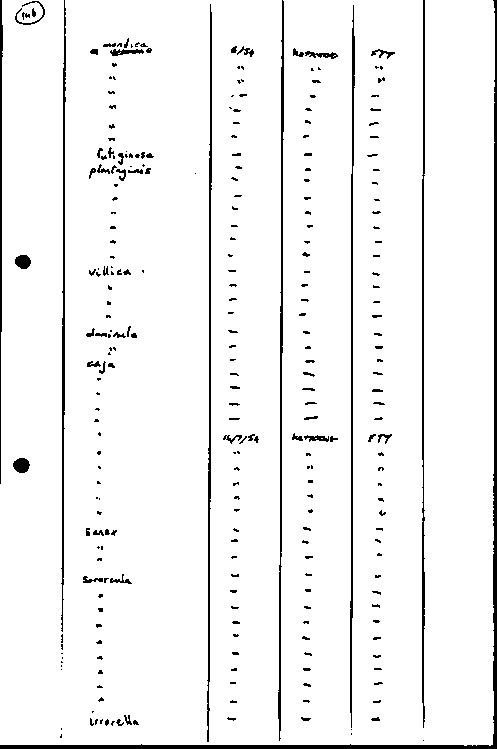 146
mendica 6/54 FTT
"
"
"
"
"
"
fuliginosa
plantaginis
"
"
"
"
"
villica
"
"
"
dominula
"
caja
"
"
"
"
"
16/7/54 FTT
"
"
"
"
"
Senex
"
"
Sororcula
"
"
"
"
"
"
"
"
irrorella